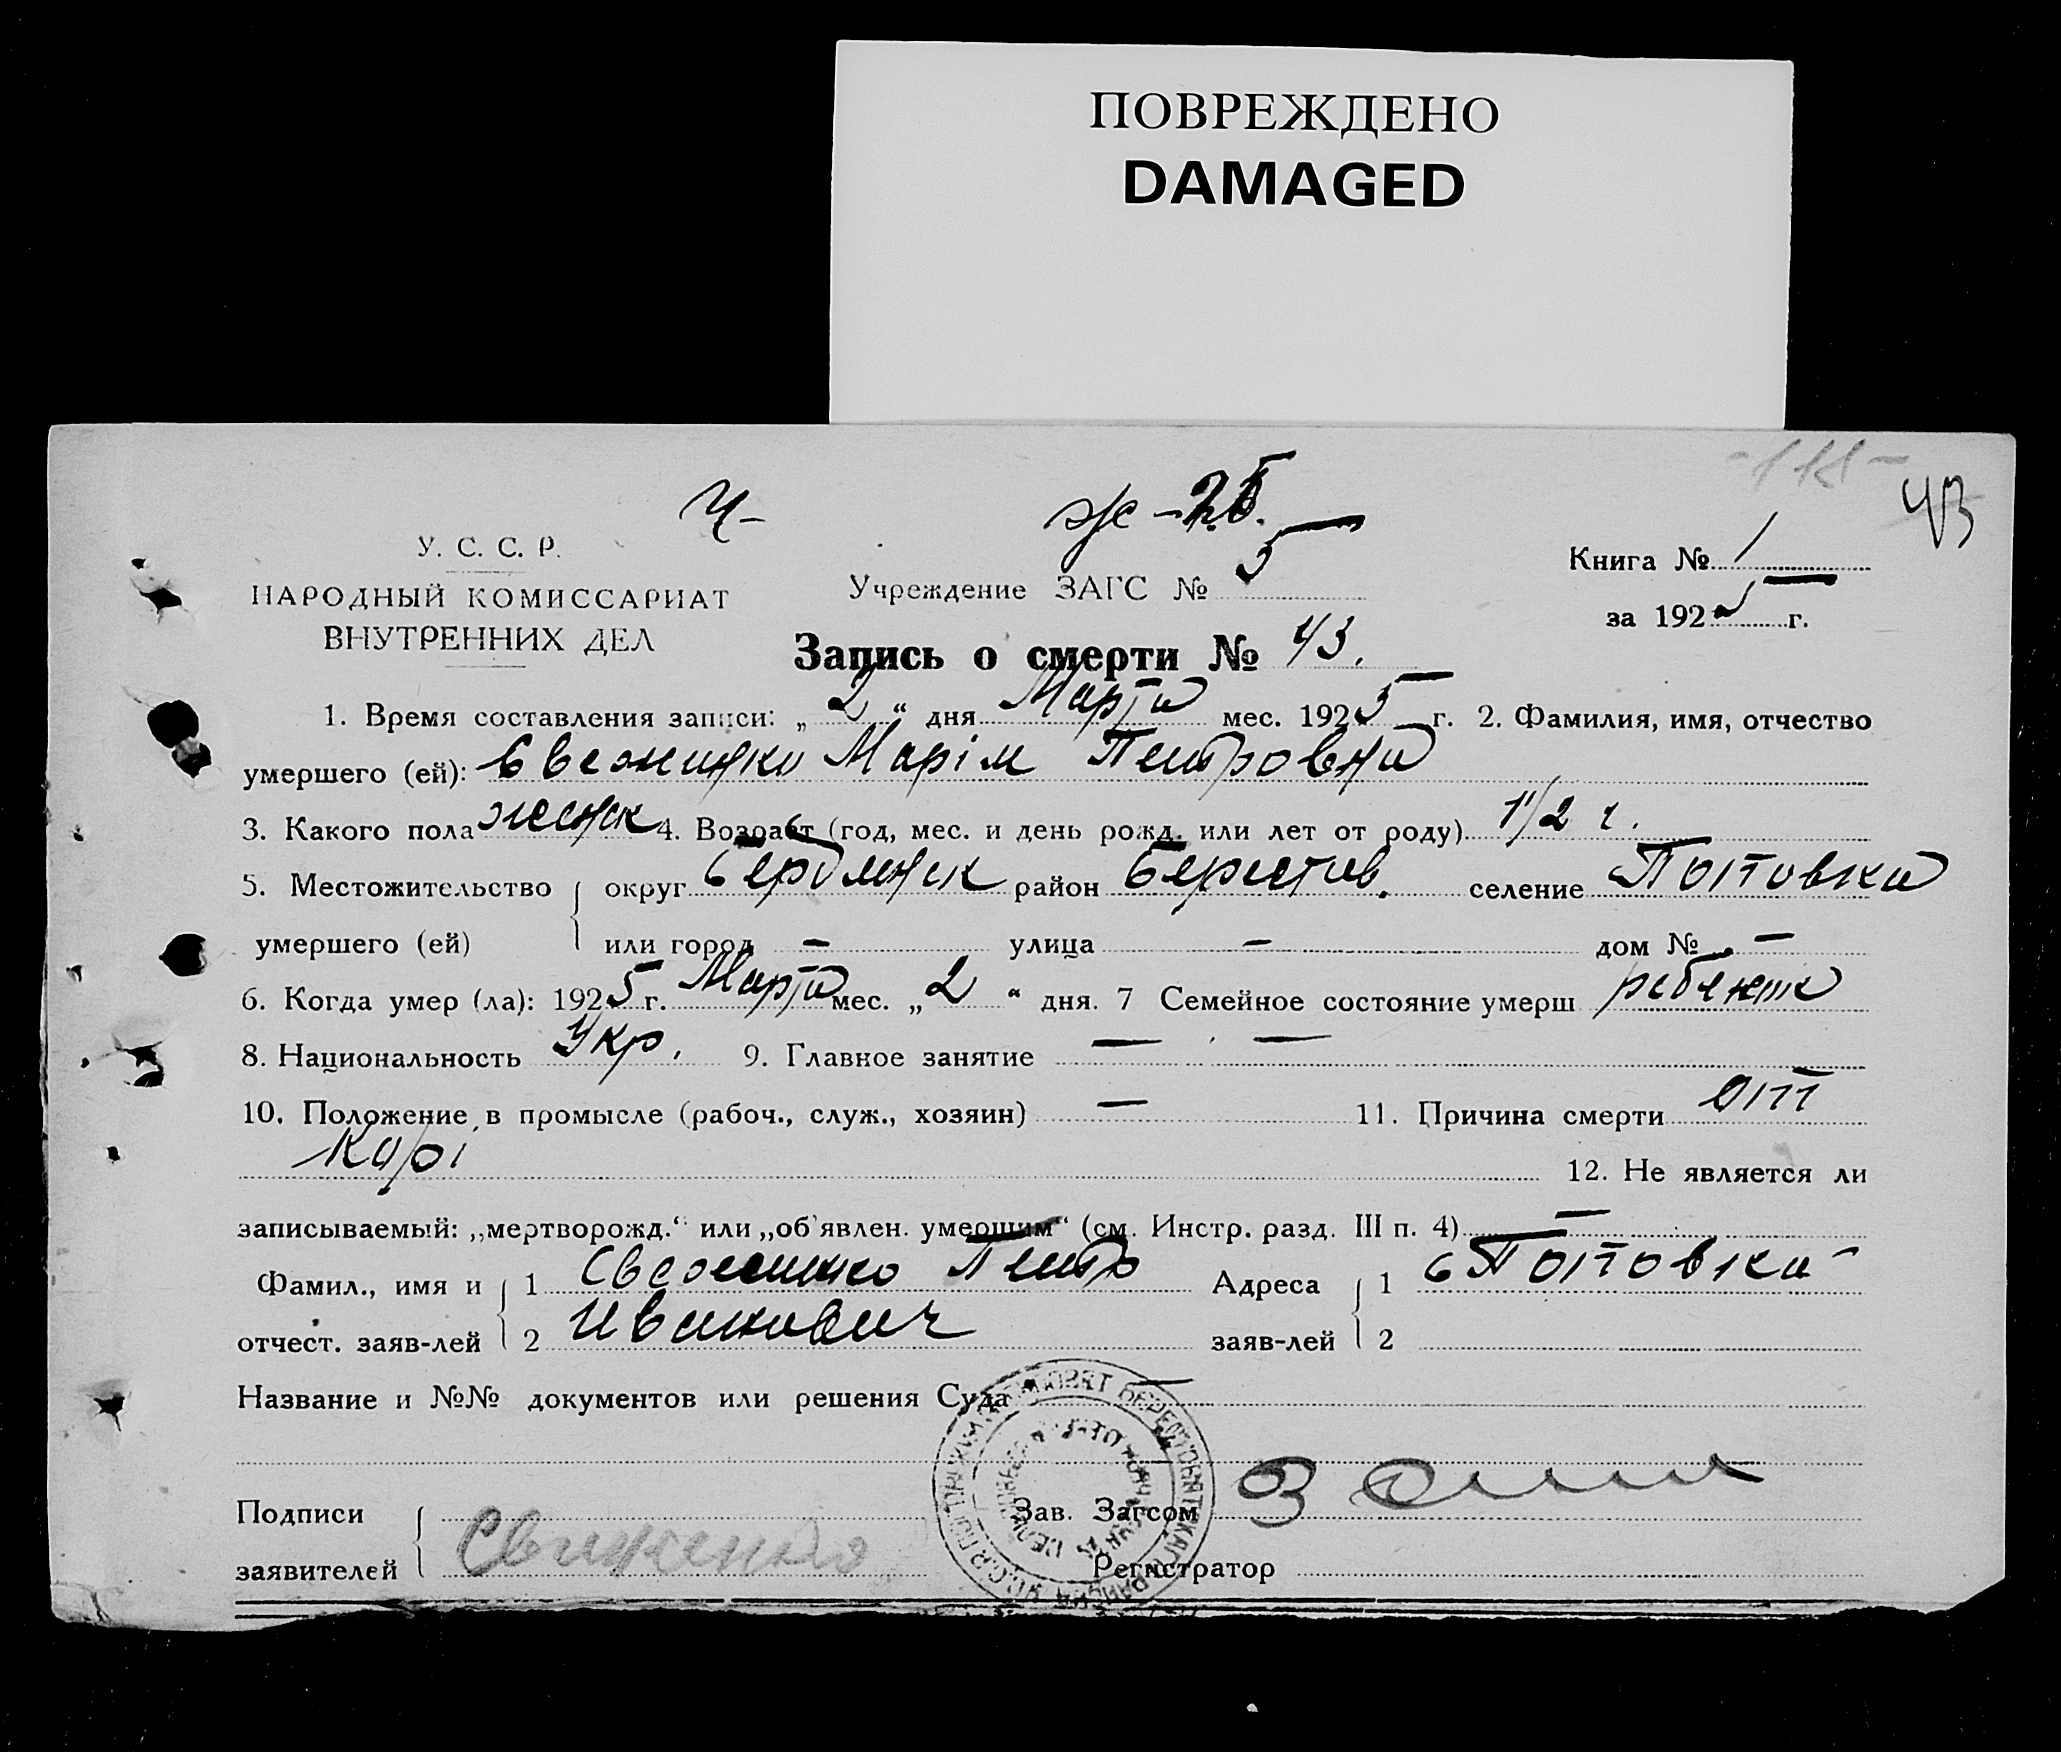 ПОВРЕЖДЕНО
DAMAGED
43
У. С. С. Р.
НАРОДНЫЙ КОМИССАРИАТ
ВНУТРЕННИХ ДЕЛ
ж - 25.
Учреждение ЗАГС № 5
Книга № 1
за 1925 г.
Запись о смерти № 43.
1. Время составления записи: „ 2 “ дня Марта мес. 1925 г. 2. Фамилия, имя, отчество
умершего (ей): Марія Петровна
3. Какого пола женск 4. Возраст (год, мес. и день рожд. или лет от роду) 1 1/2 г.
5. Местожительство округ Бердянск район Берестов. селение Поповка
умершего (ей) или город — улица — дом № —
6. Когда умер (ла): 1925 г. Марта мес. „ 2 “ дня. 7 Семейное состояние умерш
8. Национальность Укр. 9. Главное занятие — —
10. Положение в промысле (рабоч., служ., хозяин) — 11. Причина смерти отт
Корі
12. Не является ли
записываемый: „мертворожд.“ или „об'явлен. умершим“ (см. Инстр. разд. III п. 4) —
Фамил., имя и 1 Петр Адреса 1 с Поповка
отчест. заяв-лей 2 Иванович заяв-лей 2
Название и №№ документов или решения Суда —
Подписи Зав. Загсом
заявителей Регистратор